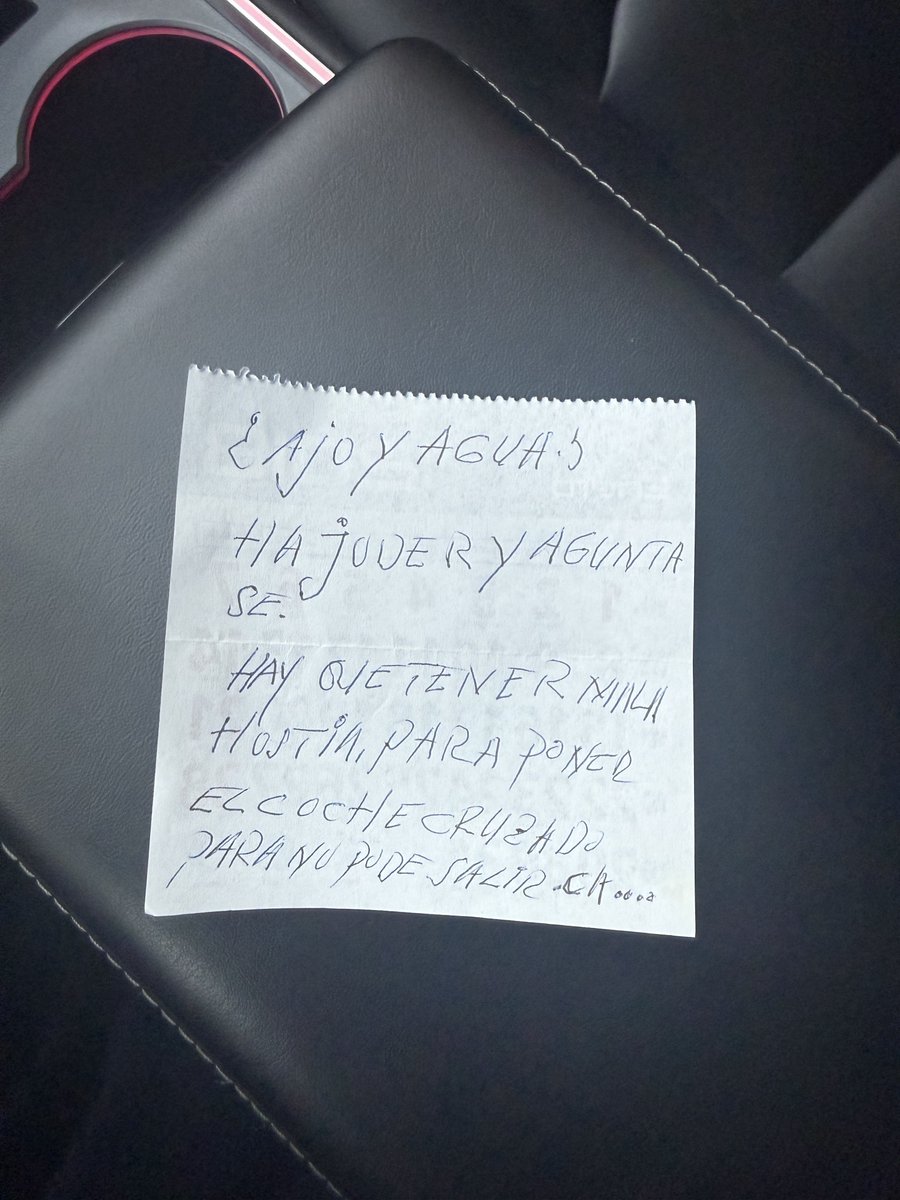 ¿AJO Y AGUA.?
HA JODER Y AGUNTA
SE.
HAY QUE TENER MALA
HOSTIA, PARA PONER
EL COCHE CRUZADO
PARA NO PODE SALIR. CA....